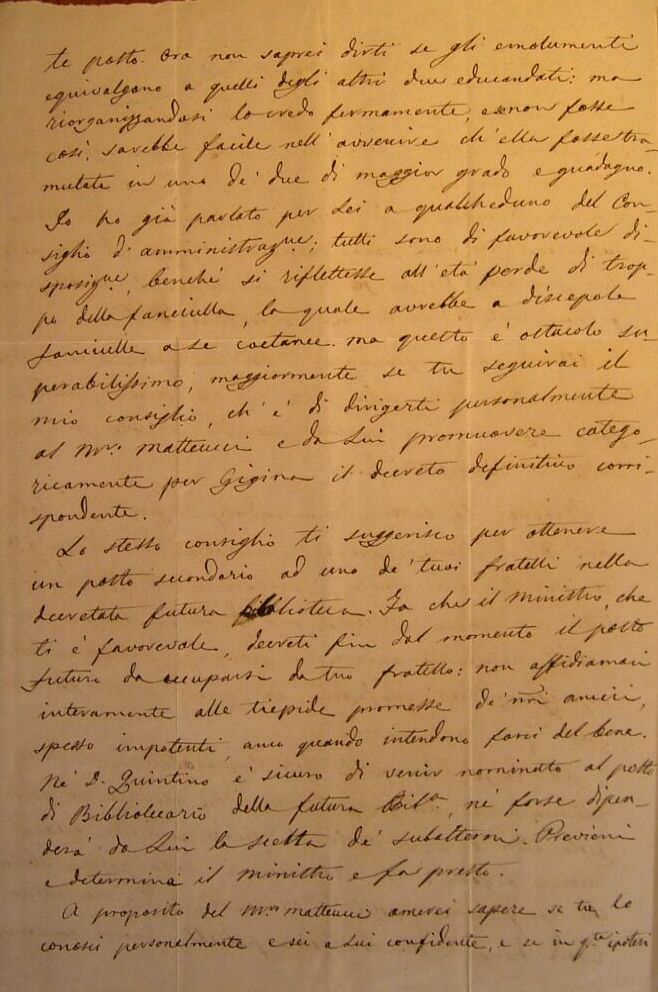 te posto. Ora non saprei dirti se gli emolumenti
equivalgano a quelli degli altri due educandati: ma
riorganizzandosi lo credo fermamente, e se non fosse
così, sarebbe facile nell'avvenire ch'ella fosse tra-
mutata in uno de' due di maggior grado e guadagno.
Io ho già parlato per Lei a qualcheduno del Con-
siglio d'amministraz.ne; tutti sono di favorevole di-
sposiz.ne, benchè si riflettesse all'età verde di trop-
po della fanciulla, la quale avrebbe a discepole
fanciulle a se coetanee. ma questo è ostacolo su-
perabilissimo, maggiormente se tu seguirai il
mio consiglio, ch'è di dirigerti personalmente
al Matteucci e da Lui promuovere catego-
ricamente per Gigina il decreto definitivo corri-
spondente.
Lo stesso consiglio ti suggerisco per ottenere
un posto secondario ad uno de' tuoi fratelli nella
decretata futura biblioteca. Fa che il Ministro, che
ti è favorevole, decreti fin dal momento il posto
futuro da occuparsi da tuo fratello: non affidiamoci
interamente alle tiepide promesse de' nri amici,
spesso impotenti, anco quando intendono farci del bene.
Nè D. Quintino è sicuro di venir nominato al posto
di Bibliotecario della futura Bib.ca, nè forse dipen-
derà da Lui la scelta de' subalterni. Previeni
e determina il Ministro e fa presto.
A proposito del Matteucci amerei sapere se tu lo
conosci personalmente e sei a Lui confidente, e se in q.ta ipotesi